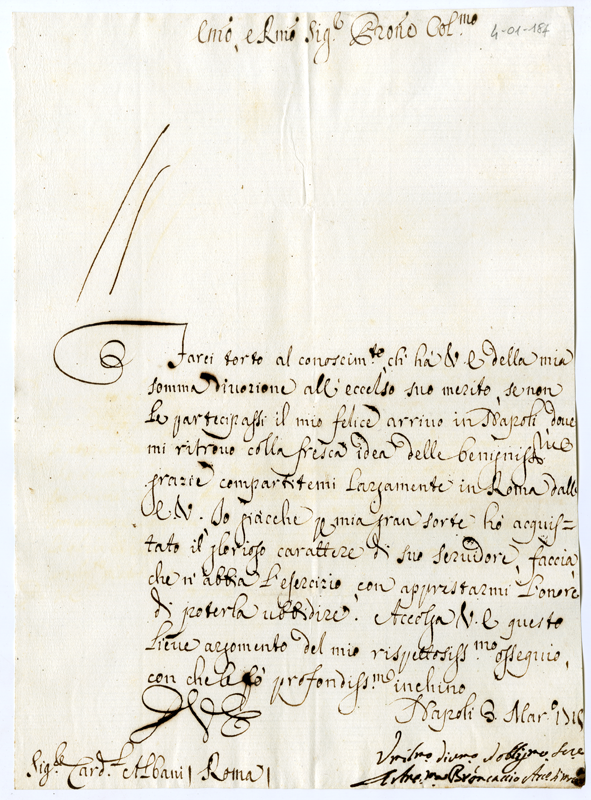 Emo, e Rmo Sig.r Prone Col.mo
4-01-184
Farei torto al conoscim.to, ch'hà V. E. della mia
somma divozione all'eccelso suo merito, se non
Le partecipassi il mio felice arrivo in Napoli, dove
mi ritrovo colla fresca idea delle benigniss.me
grazie compartitemi largamente in Roma dall'
E. V. Io giacche p mia gran sorte hò acquis=
tato il glorioso carattere di suo servidore, faccia,
che n'abbia l'esercizio, con apprestarmi l'onore
di poterla ubbidire. Accolga V. E. questo
lieve argomento del mio rispettosiss.mo ossequio,
con che le fò profondiss.mo inchino
Napoli 3. Mar.o
V E
Sig.r Card.l Albani / Roma /
Brancaccio